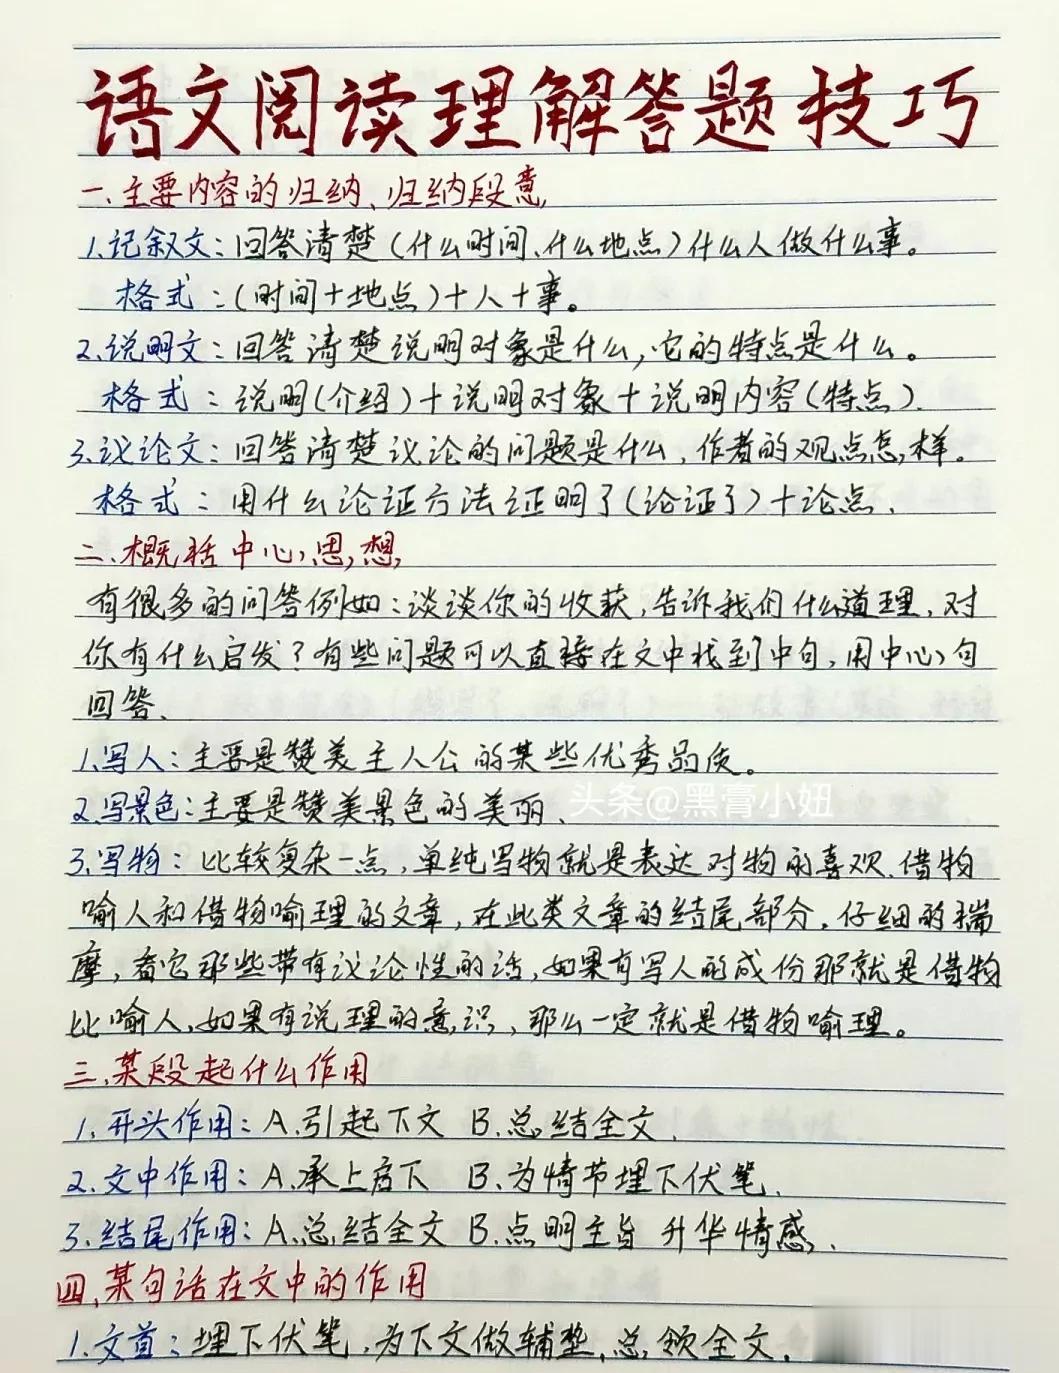 语文阅读理解答题技巧
一、主要内容的归纳、归纳段意
1.记叙文：回答清楚（什么时间、什么地点）什么人做什么事。
格式：（时间＋地点）＋人＋事。
2.说明文：回答清楚说明对象是什么，它的特点是什么。
格式：说明（介绍）＋说明对象＋说明内容（特点）.
3.议论文：回答清楚议论的问题是什么，作者的观点怎样。
格式：用什么论证方法证明了（论证了）＋论点.
二、概括中心思想
有很多的问答例如：谈谈你的收获，告诉我们什么道理，对
你有什么启发？有些问题可以直接在文中找到中句，用中心句
回答.
1.写人：主要是赞美主人公的某些优秀品质。
2.写景色：主要是赞美景色的美丽.
头条@黑膏小妞
3.写物：比较复杂一点，单纯写物就是表达对物的喜欢.借物
喻人和借物喻理的文章，在此类文章的结尾部分，仔细的揣
摩，看它那些带有议论性的话，如果有写人的成份那就是借物
比喻人，如果有说理的意识，那么一定就是借物喻理。
三、某段起什么作用
1.开头作用：A.引起下文 B.总结全文.
2.文中作用：A.承上启下 B.为情节埋下伏笔.
3.结尾作用：A.总结全文 B.点明主旨 升华情感.
四、某句话在文中的作用
1.文首：埋下伏笔，为下文做辅垫，总领全文.